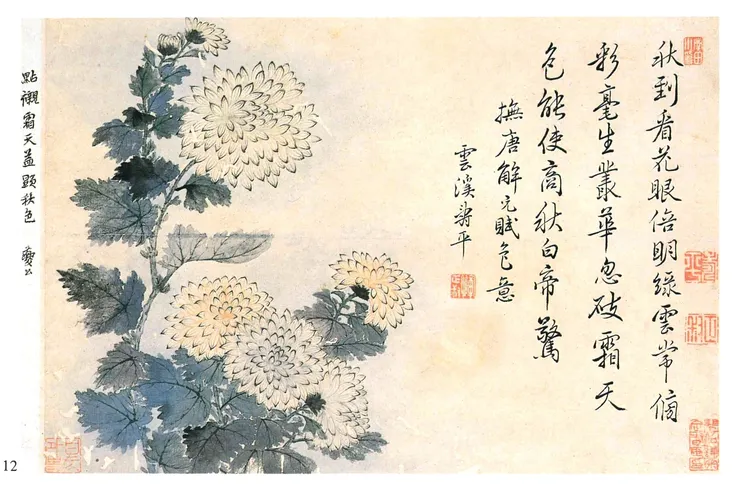 秋到看花眼倍明綠雲常傍
彩毫生叢華忽破霜天
色能使高秋白帝驚
撫唐解元賦色意
雲溪壽平
點襯霜天益顯秋色
12